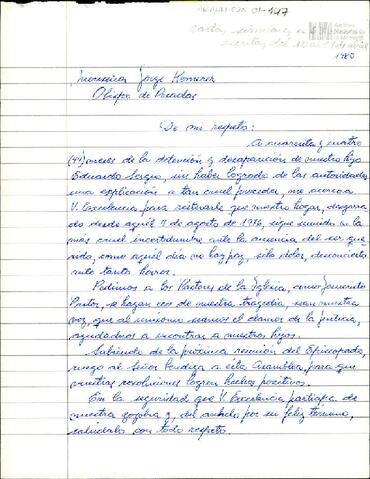 Cartas, 
escritas del 10 al 11 de abril
1980
Monseñor Jorge Kemerer
Obispo de Posadas
De mi respeto:
A cuarenta y cuatro
(44) meses de la detención y desaparición de nuestro hijo
Eduardo Sergio, sin haber logrado de las autoridades
una explicación a tan cruel proceder, me acerco a
V. Excelencia para reiterarle que nuestro hogar, desgarra
do desde aquél 7 de agosto de 1976, sigue sumido en la
más cruel incertidumbre ante la ausencia del ser que
rido, como aquél día no hay paz, sólo dolor, desconcierto
ante tanto horror.
Pedimos a los Pastores de la Iglesia, como Jesucristo
Pastor, se hagan eco de nuestra tragedia, sean nuestra
voz, que al unísono seamos el clamor de la justicia,
ayudadnos a encontrar a nuestros hijos.
Sabiendo de la próxima reunión del Episcopado,
ruego al Señor bendiga a esta Asamblea, para que
vuestras resoluciones logren hechos positivos.
En la seguridad que V. Excelencia participa de
nuestra zozobra y del anhelo por su feliz término,
salúdolo con todo respeto.